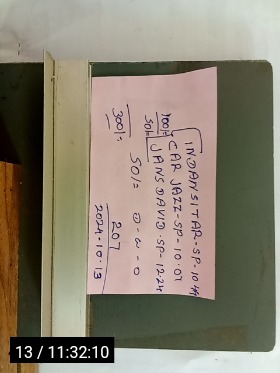 INDANSITAR-SP-10:44
100/= CAR JAZZ-SP-10:07
50/= JANS DAVID-SP-12:24
50/= D-W-O
300/=
2.07
2024.10.13
13 / 11:32:10